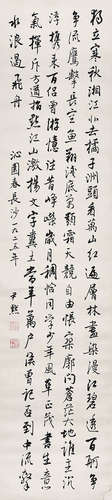 獨立寒秋湘江北去橘子洲頭看萬山紅遍層林盡染漫江碧透百舸
争流鷹擊長空魚翔淺底萬類霜天競自由悵寥廓問蒼茫大地誰主沉
浮携來百侣曾游憶往昔崢嶸歲月稠恰同學少年風華正茂書生意
氣揮斥方遒指點江山激揚文字糞土當年萬户侯曾記否到中流擊
水浪遏飛舟 沁園春長沙一九二五年 尹默